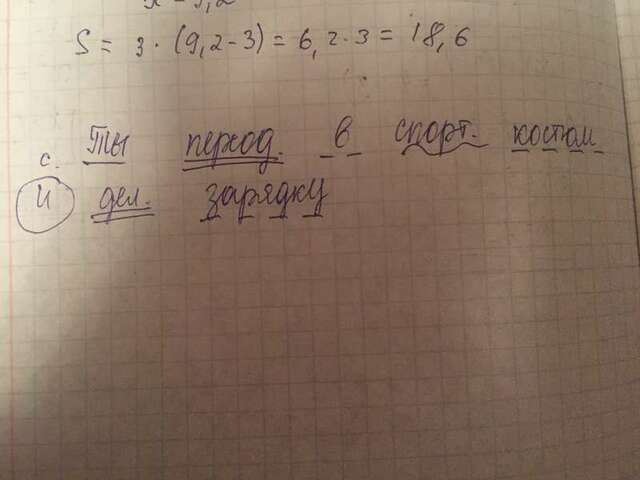 S = 3 · (9,2 - 3) = 6,2 · 3 = 18,6
с.
Ты переод. в спорт. костюм
и дел. зарядку